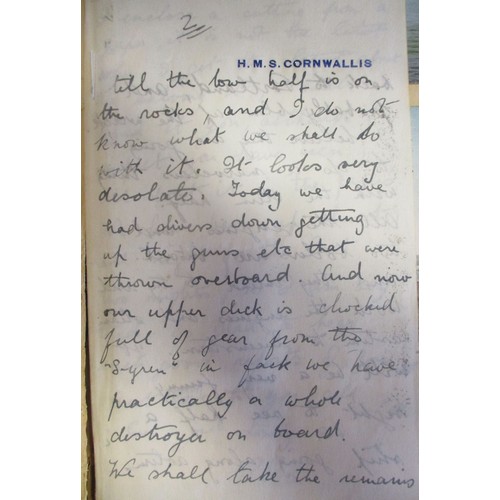 2
H.M.S. CORNWALLIS
till the bow half is on
the rocks, and I do not
know what we shall do
with it. It looks very
desolate. Today we have
had divers down getting
up the guns etc that were
thrown overboard. And now
our upper deck is chocked
full of gear from the
"Syren" in fack we have
practically a whole
destroyer on board.
We shall take the remains